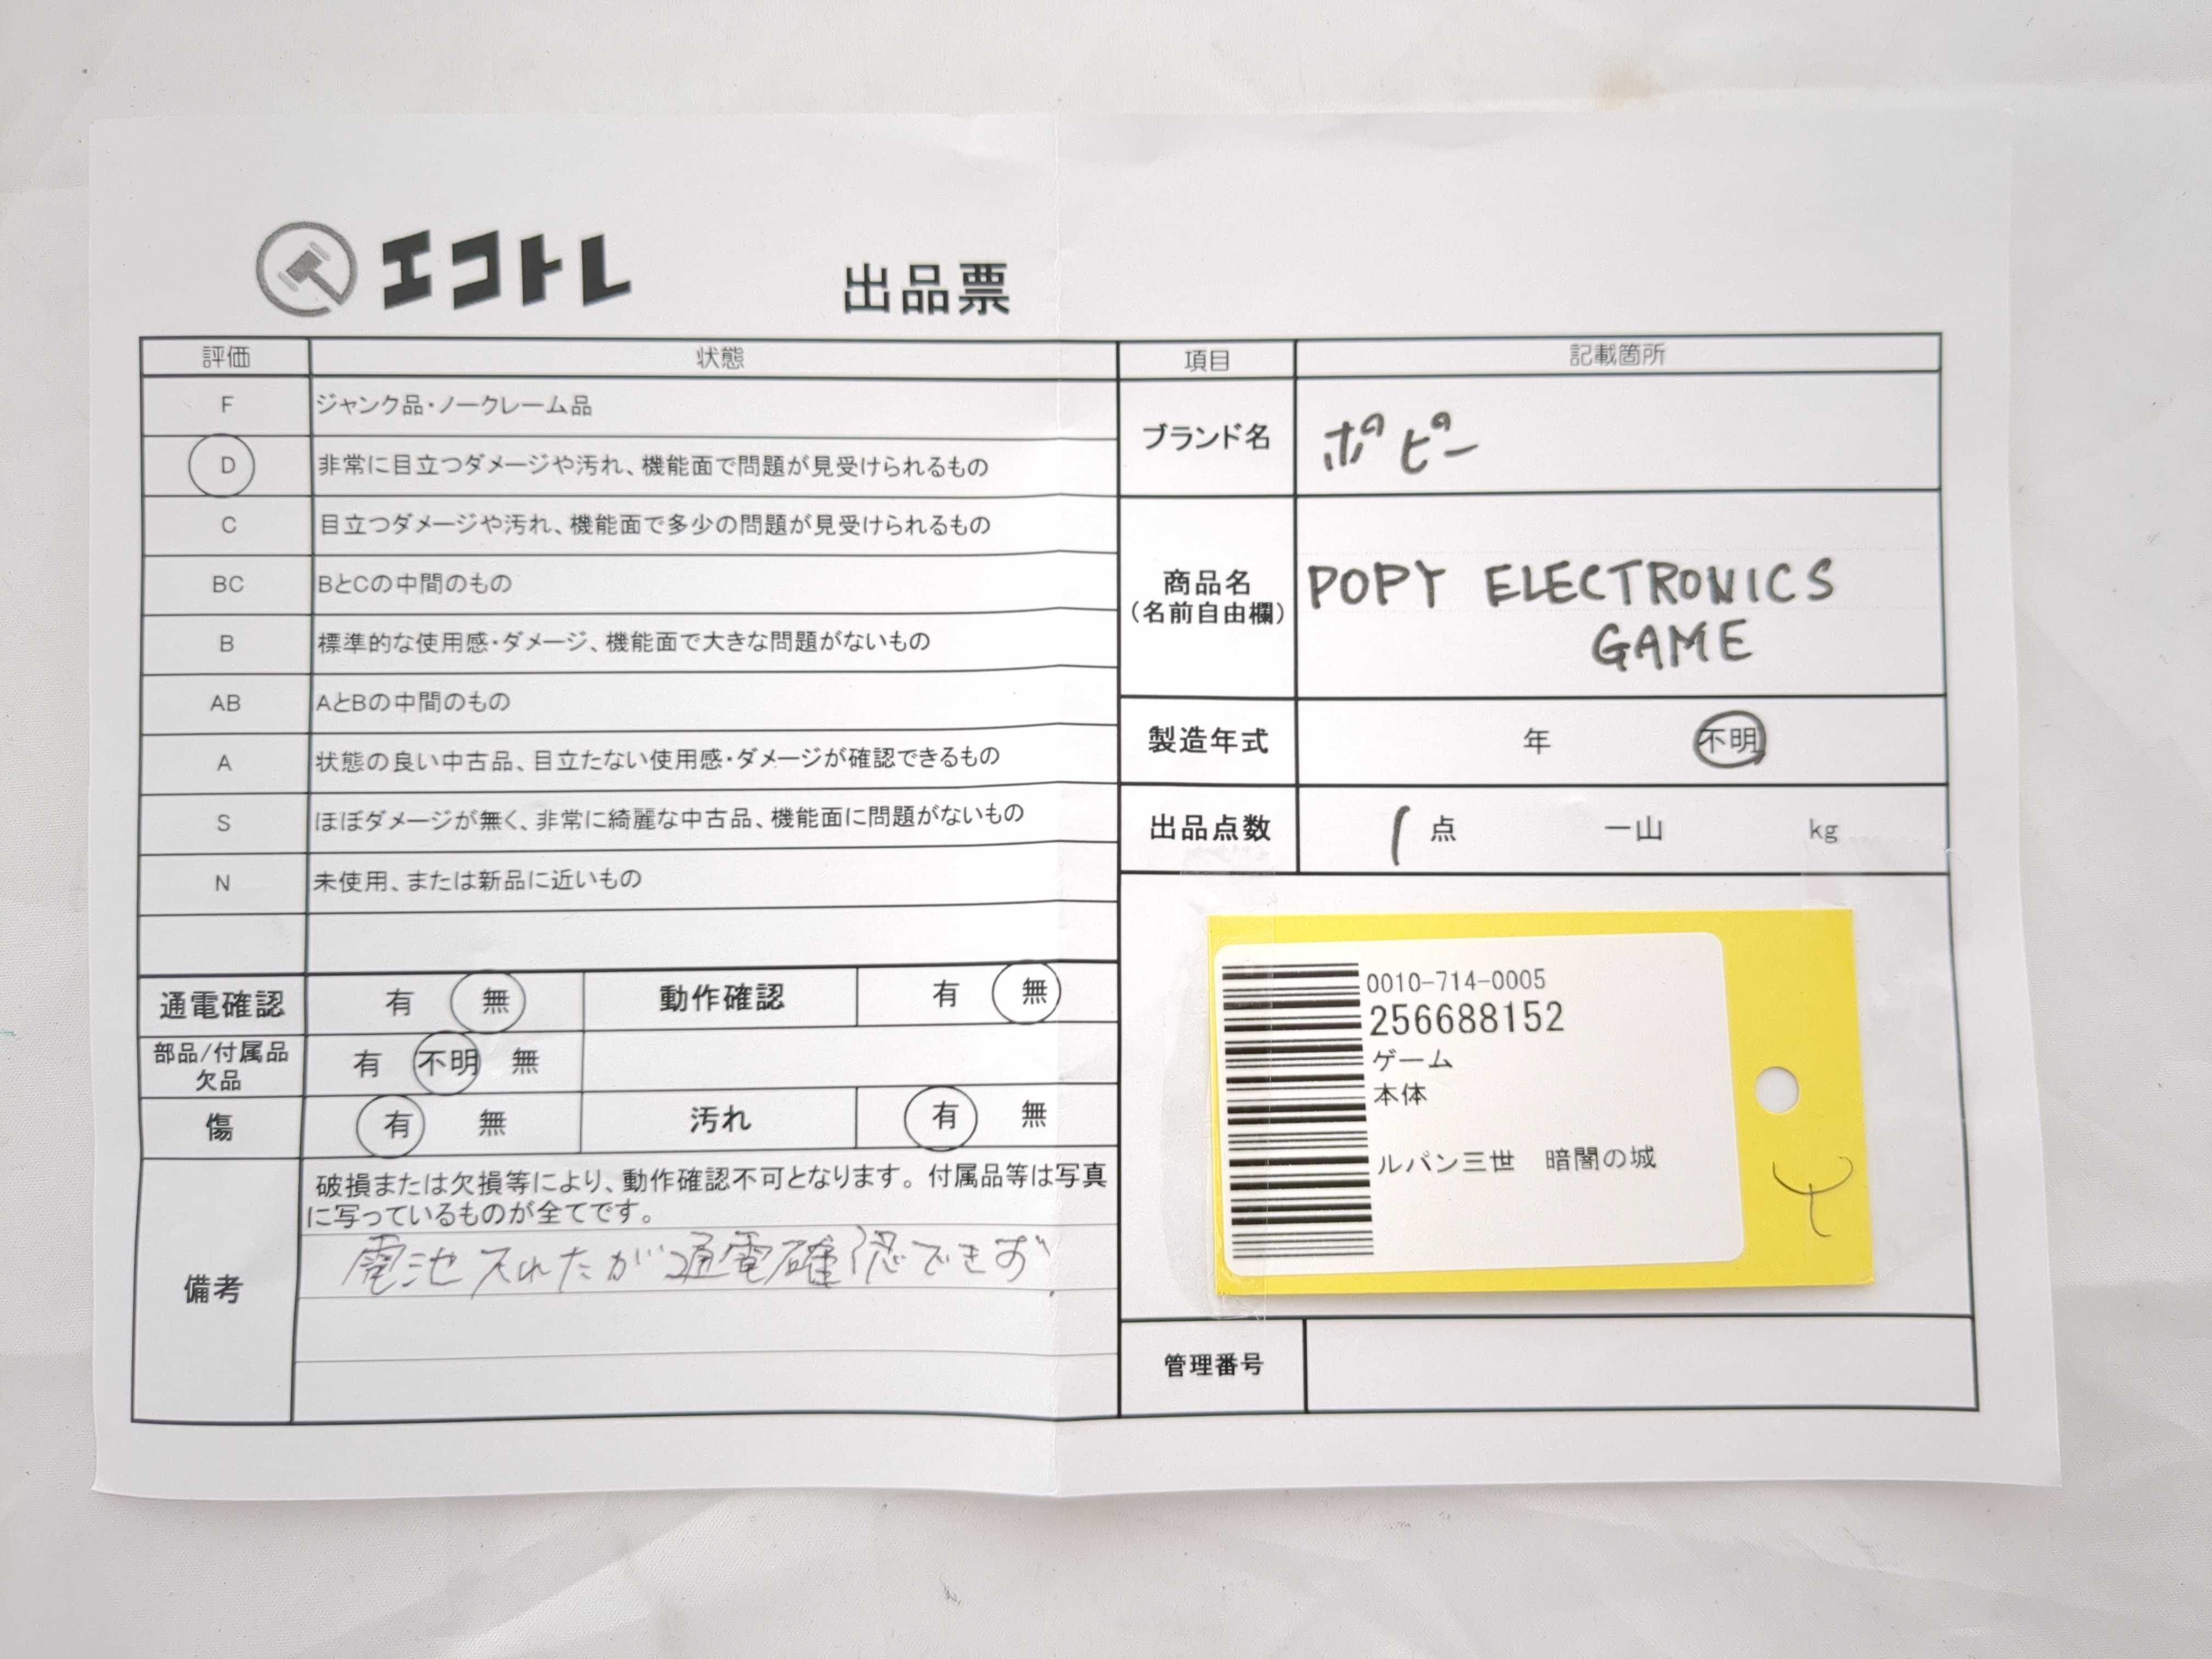 エコトレ
出品票
評価 状態
F ジャンク品・ノークレーム品
D 非常に目立つダメージや汚れ、機能面で問題が見受けられるもの
C 目立つダメージや汚れ、機能面で多少の問題が見受けられるもの
BC BとCの中間のもの
B 標準的な使用感・ダメージ、機能面で大きな問題がないもの
AB AとBの中間のもの
A 状態の良い中古品、目立たない使用感・ダメージが確認できるもの
S ほぼダメージが無く、非常に綺麗な中古品、機能面に問題がないもの
N 未使用、または新品に近いもの
通電確認 有 無 動作確認 有 無
部品/付属品
欠品
有 不明 無
傷 有 無 汚れ 有 無
備考
破損または欠損等により、動作確認不可となります。付属品等は写真
に写っているものが全てです。
電池入れたが通電確認できず
項目 記載箇所
ブランド名 ポピー
商品名
(名前自由欄)
POPY ELECTRONICS
GAME
製造年式 年 不明
出品点数 1点 一山 kg
0010-714-0005
256688152
ゲーム
本体
ルパン三世 暗闇の城
管理番号